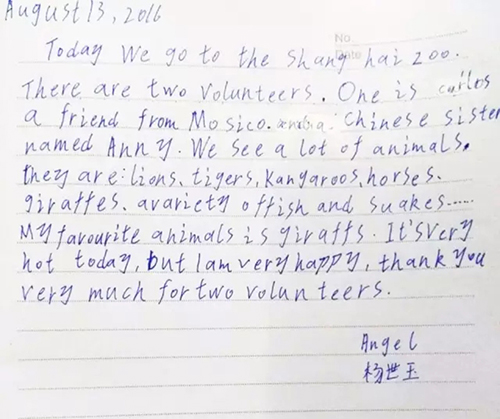 August 13, 2016
No.
Date
Today We go to the Shang hai zoo.
There are two Volunteers. One is carlos
a friend from Mosico. and a Chinese sister
named Anny. We see a lot of animals.
they are: lions、tigers、Kangaroos、horses.
giraffes、avariety offish and suakes......
My favourite animals is giraffs. It'svery
hot today, but Iam very happy, thank you
very much for two volunteers.
Angel
杨世玉